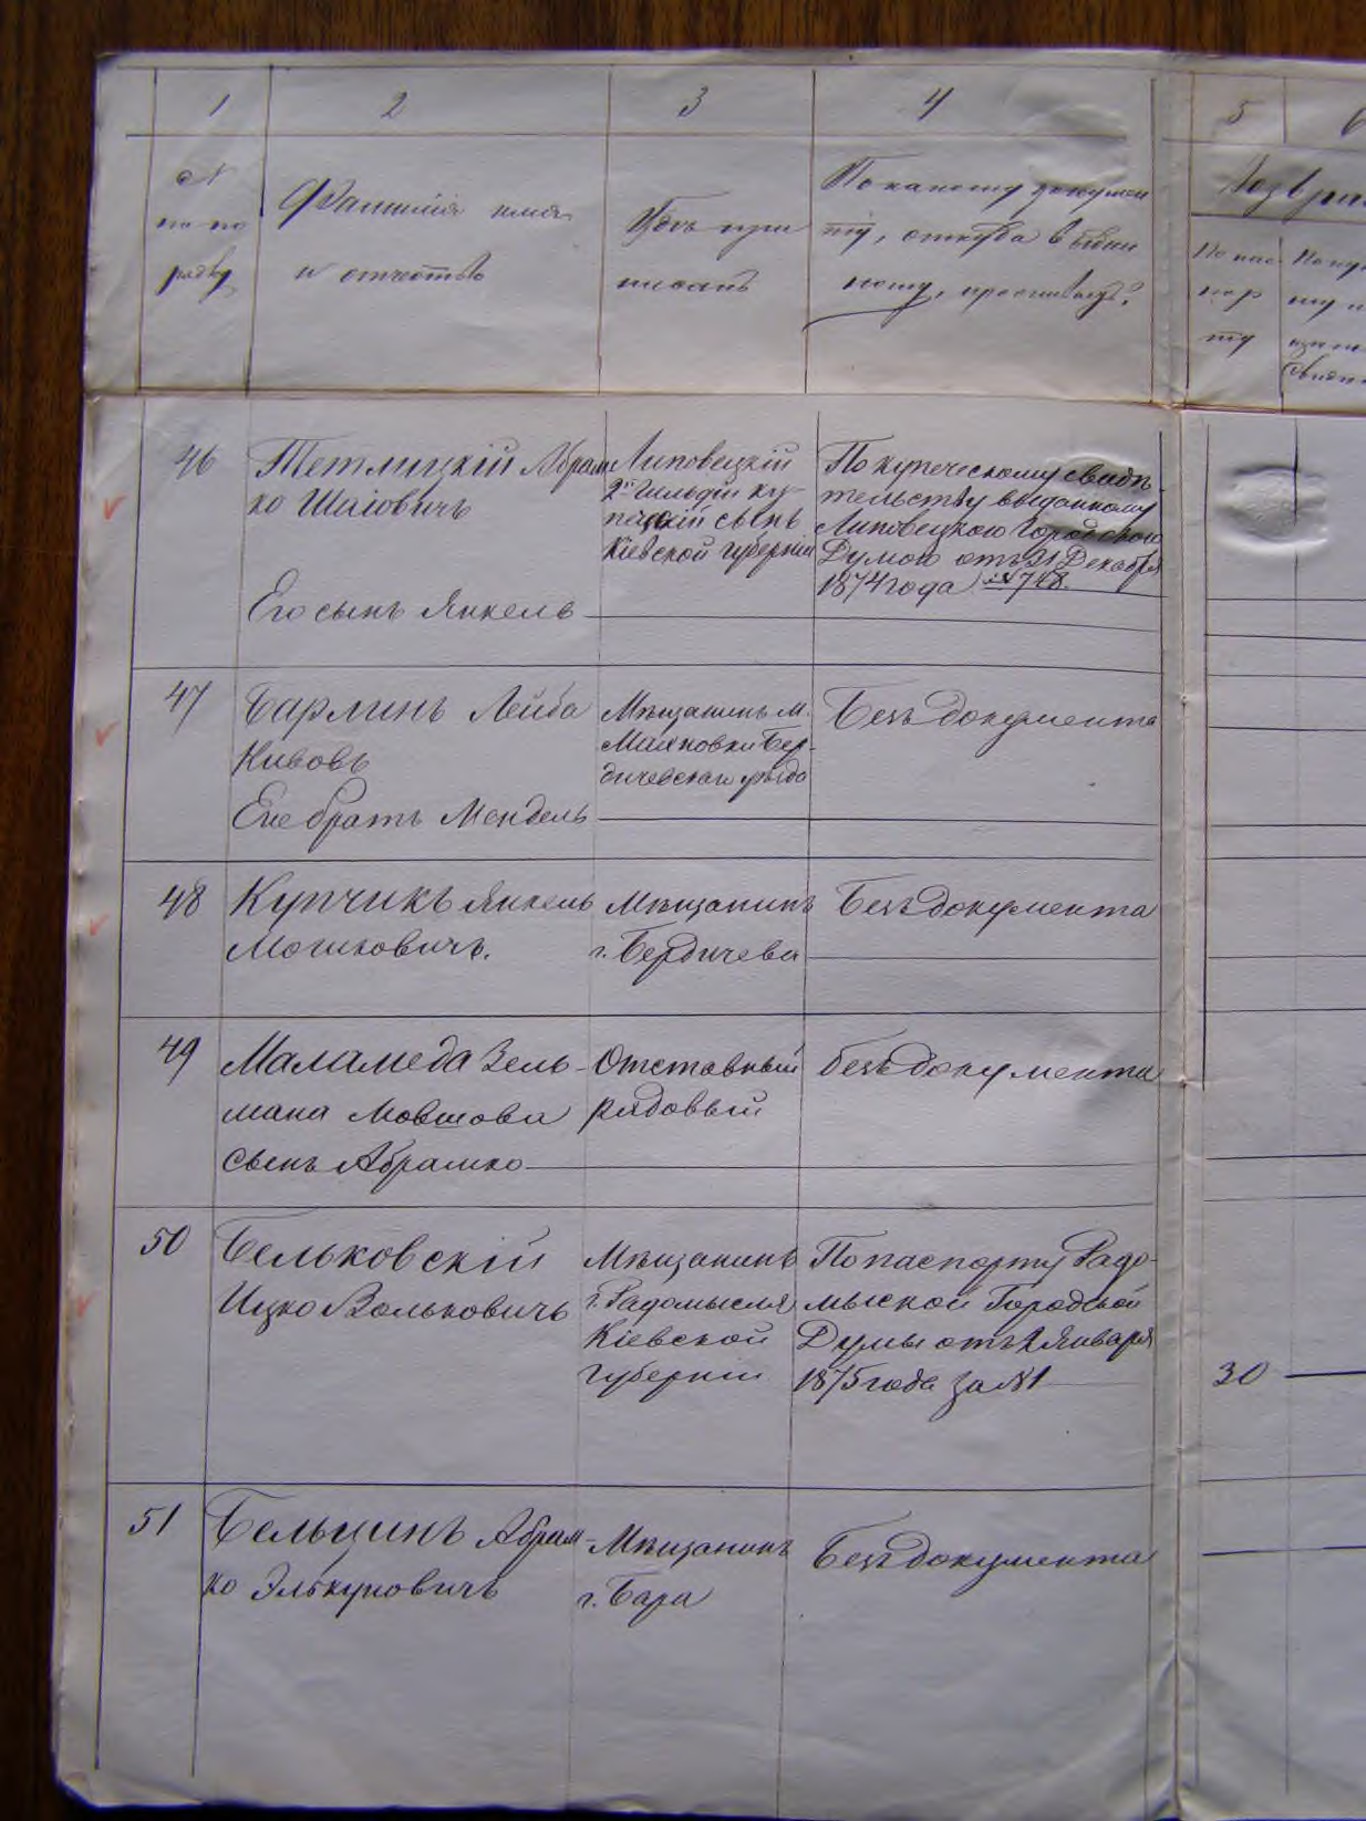 1 2 3 4 5 6
№ по по рядку
Фамилія имя и отчество
Гдѣ при писанъ
По какому докумен ту, откуда выдан ному, проживаетъ?
Возра
По пас пор ту
46
Тетлицкій Абрам
ко Шаіовичъ
Его сынъ Янкель
Липовецкій
2й Гильдіи ку-
пецкій сынъ
Кіевской губерніи
По купеческому свидѣ-
тельству выданному
Липовецкою Городскою
Думою отъ 31 Декабря
1874 года № 748.
47
Барлинъ Лейба
Кивовъ
Его братъ Мендель
Мѣщанинъ м.
Махновки Бер-
дичевскаго уѣзда
Безъ документа
48
Купчикъ Янкель
Мошковичъ.
Мѣщанинъ
г. Бердичева
Безъ документа
49
Маламеда Зель-
мана Мовшова
сынъ Абрамко
Отставный
рядовый
безъ документа
50
Бельковскій
Ицко Вольковичъ
Мѣщанинъ
г. Радомысля
Кіевской
губерніи
По паспорту Радо-
мысской Городской
Думы отъ 2 Января
1875 года за №1
30
51
Бельцинъ Абрам-
ко Элькуновичъ
Мѣщанинъ
г. Бара
Безъ документа